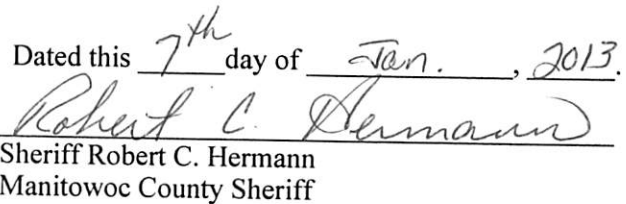 Dated this 7th day of Jan., 2013.
Robert C. Hermann
Sheriff Robert C. Hermann
Manitowoc County Sheriff